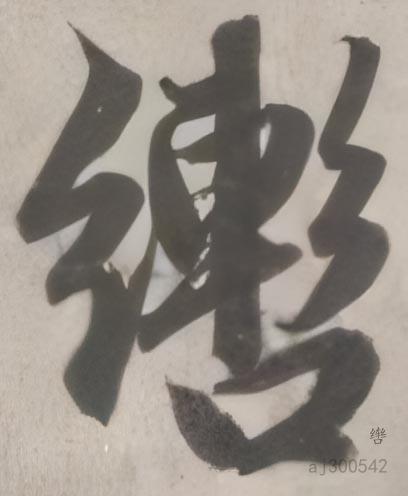 轡
轡
aj300542